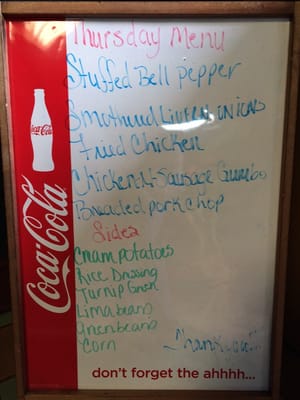 Thursday Menu
Stuffed Bell pepper
Smothered Liver & onions
Fried Chicken
Chicken & Sausage Gumbo
Breaded pork chop
Sides
Cream potatoes
Rice Dressing
Turnip Green
Lima beans
Green beans
Corn
Thank you!!!
Coca-Cola
Coca-Cola
don't forget the ahhhh...